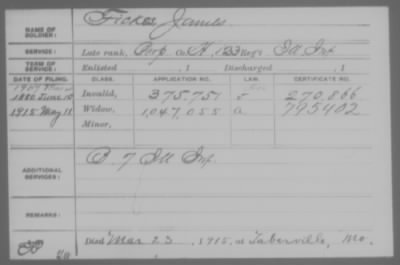 NAME OF SOLDIER: James
SERVICE: Late rank, Corp Co. H, 123 Reg't Ill Inf
TERM OF SERVICE: Enlisted , 1 Discharged , 1
DATE OF FILING. CLASS. APPLICATION NO. LAW. CERTIFICATE NO.
1907
1880 June 10 Invalid, 375,751 270,866
1915 May 11 Widow, 1,047,055 a 795402
Minor,
ADDITIONAL SERVICES: B. 7 Ill Inf.
REMARKS:
Died Mar 23, 1915, at Taberville, Mo.